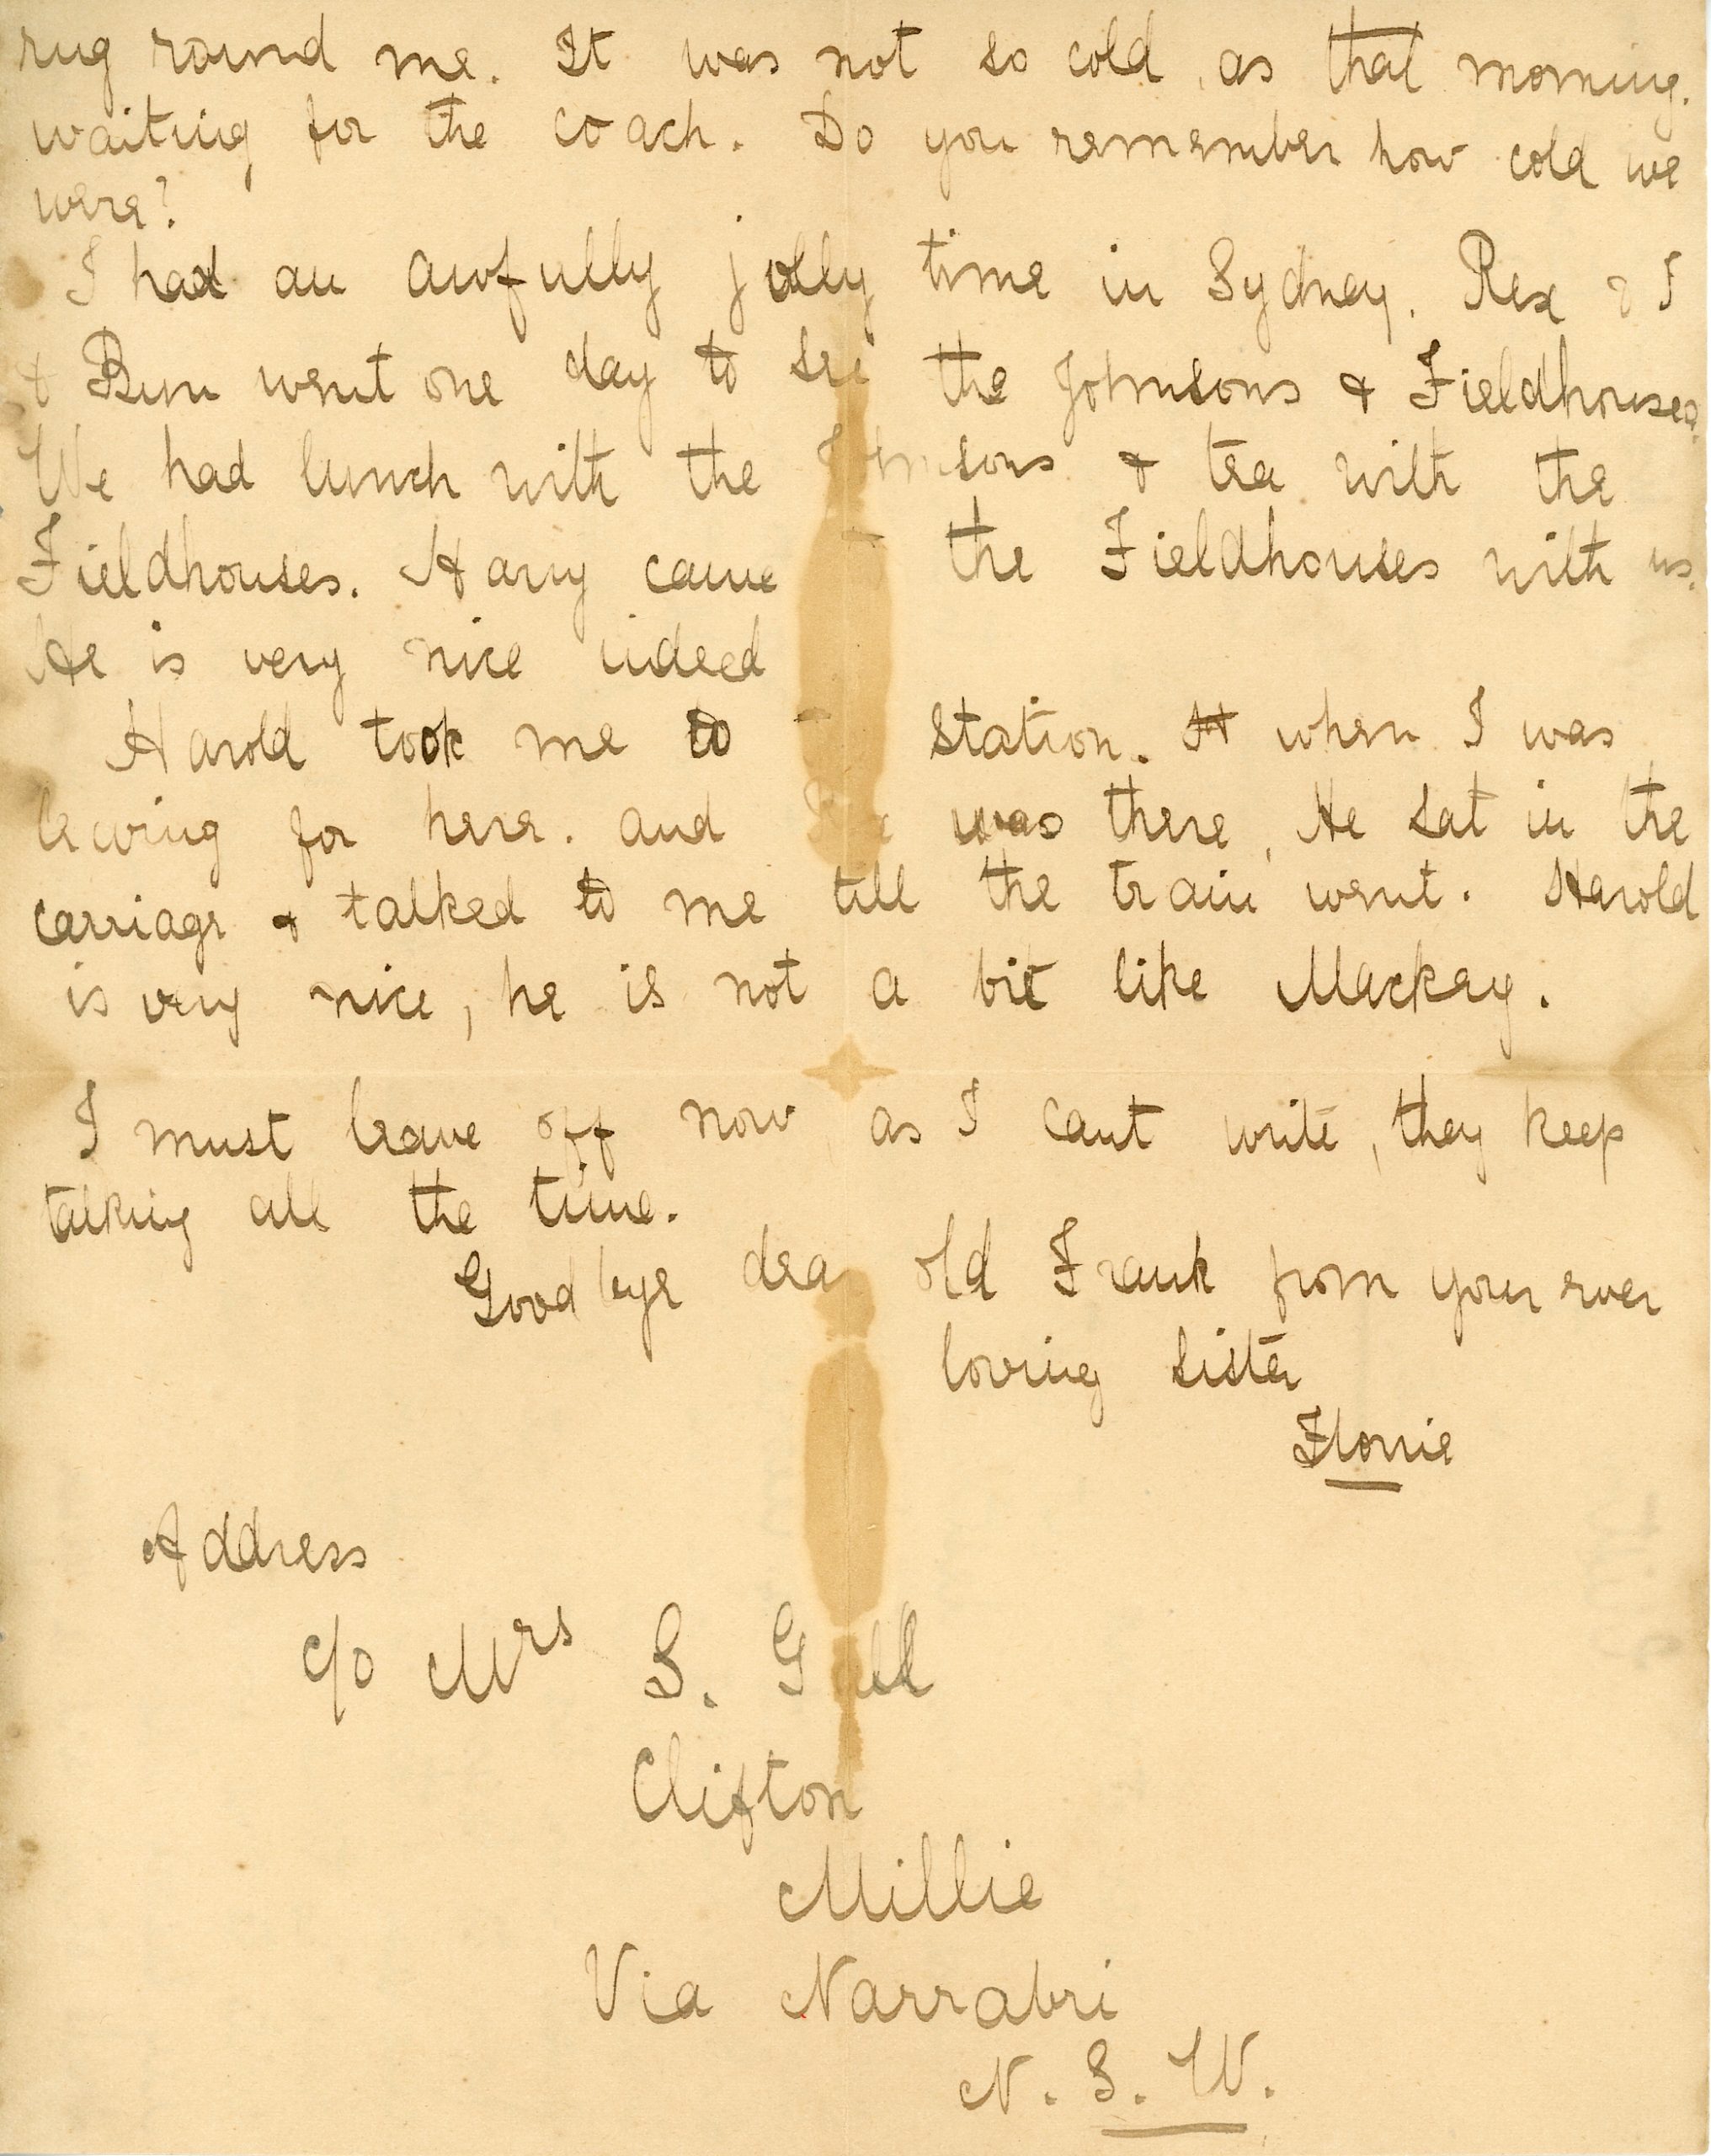 rug round me. It was not so cold, as that morning.
waiting for the coach. Do you remember how cold we
were?
I had an awfully jolly time in Sydney. Rex & I
& Bun went one day to see the Johnsons & Fieldhouses.
We had lunch with the Johnsons & tea with the
Fieldhouses. Harry came the Fieldhouses with us.
He is very nice indeed
Harold took me to station. when I was
leaving for here. and was there, He sat in the
carriage & talked to me till the train went. Harold
is very nice, he is not a bit like Mackay.
I must leave off now as I cant write, they keep
talking all the time.
Goodbye dear old Frank from your ever
loving sister
Florrie
Address
c/o Mrs S. Gall
Clifton
Millie
Via Narrabri
N. S. W.